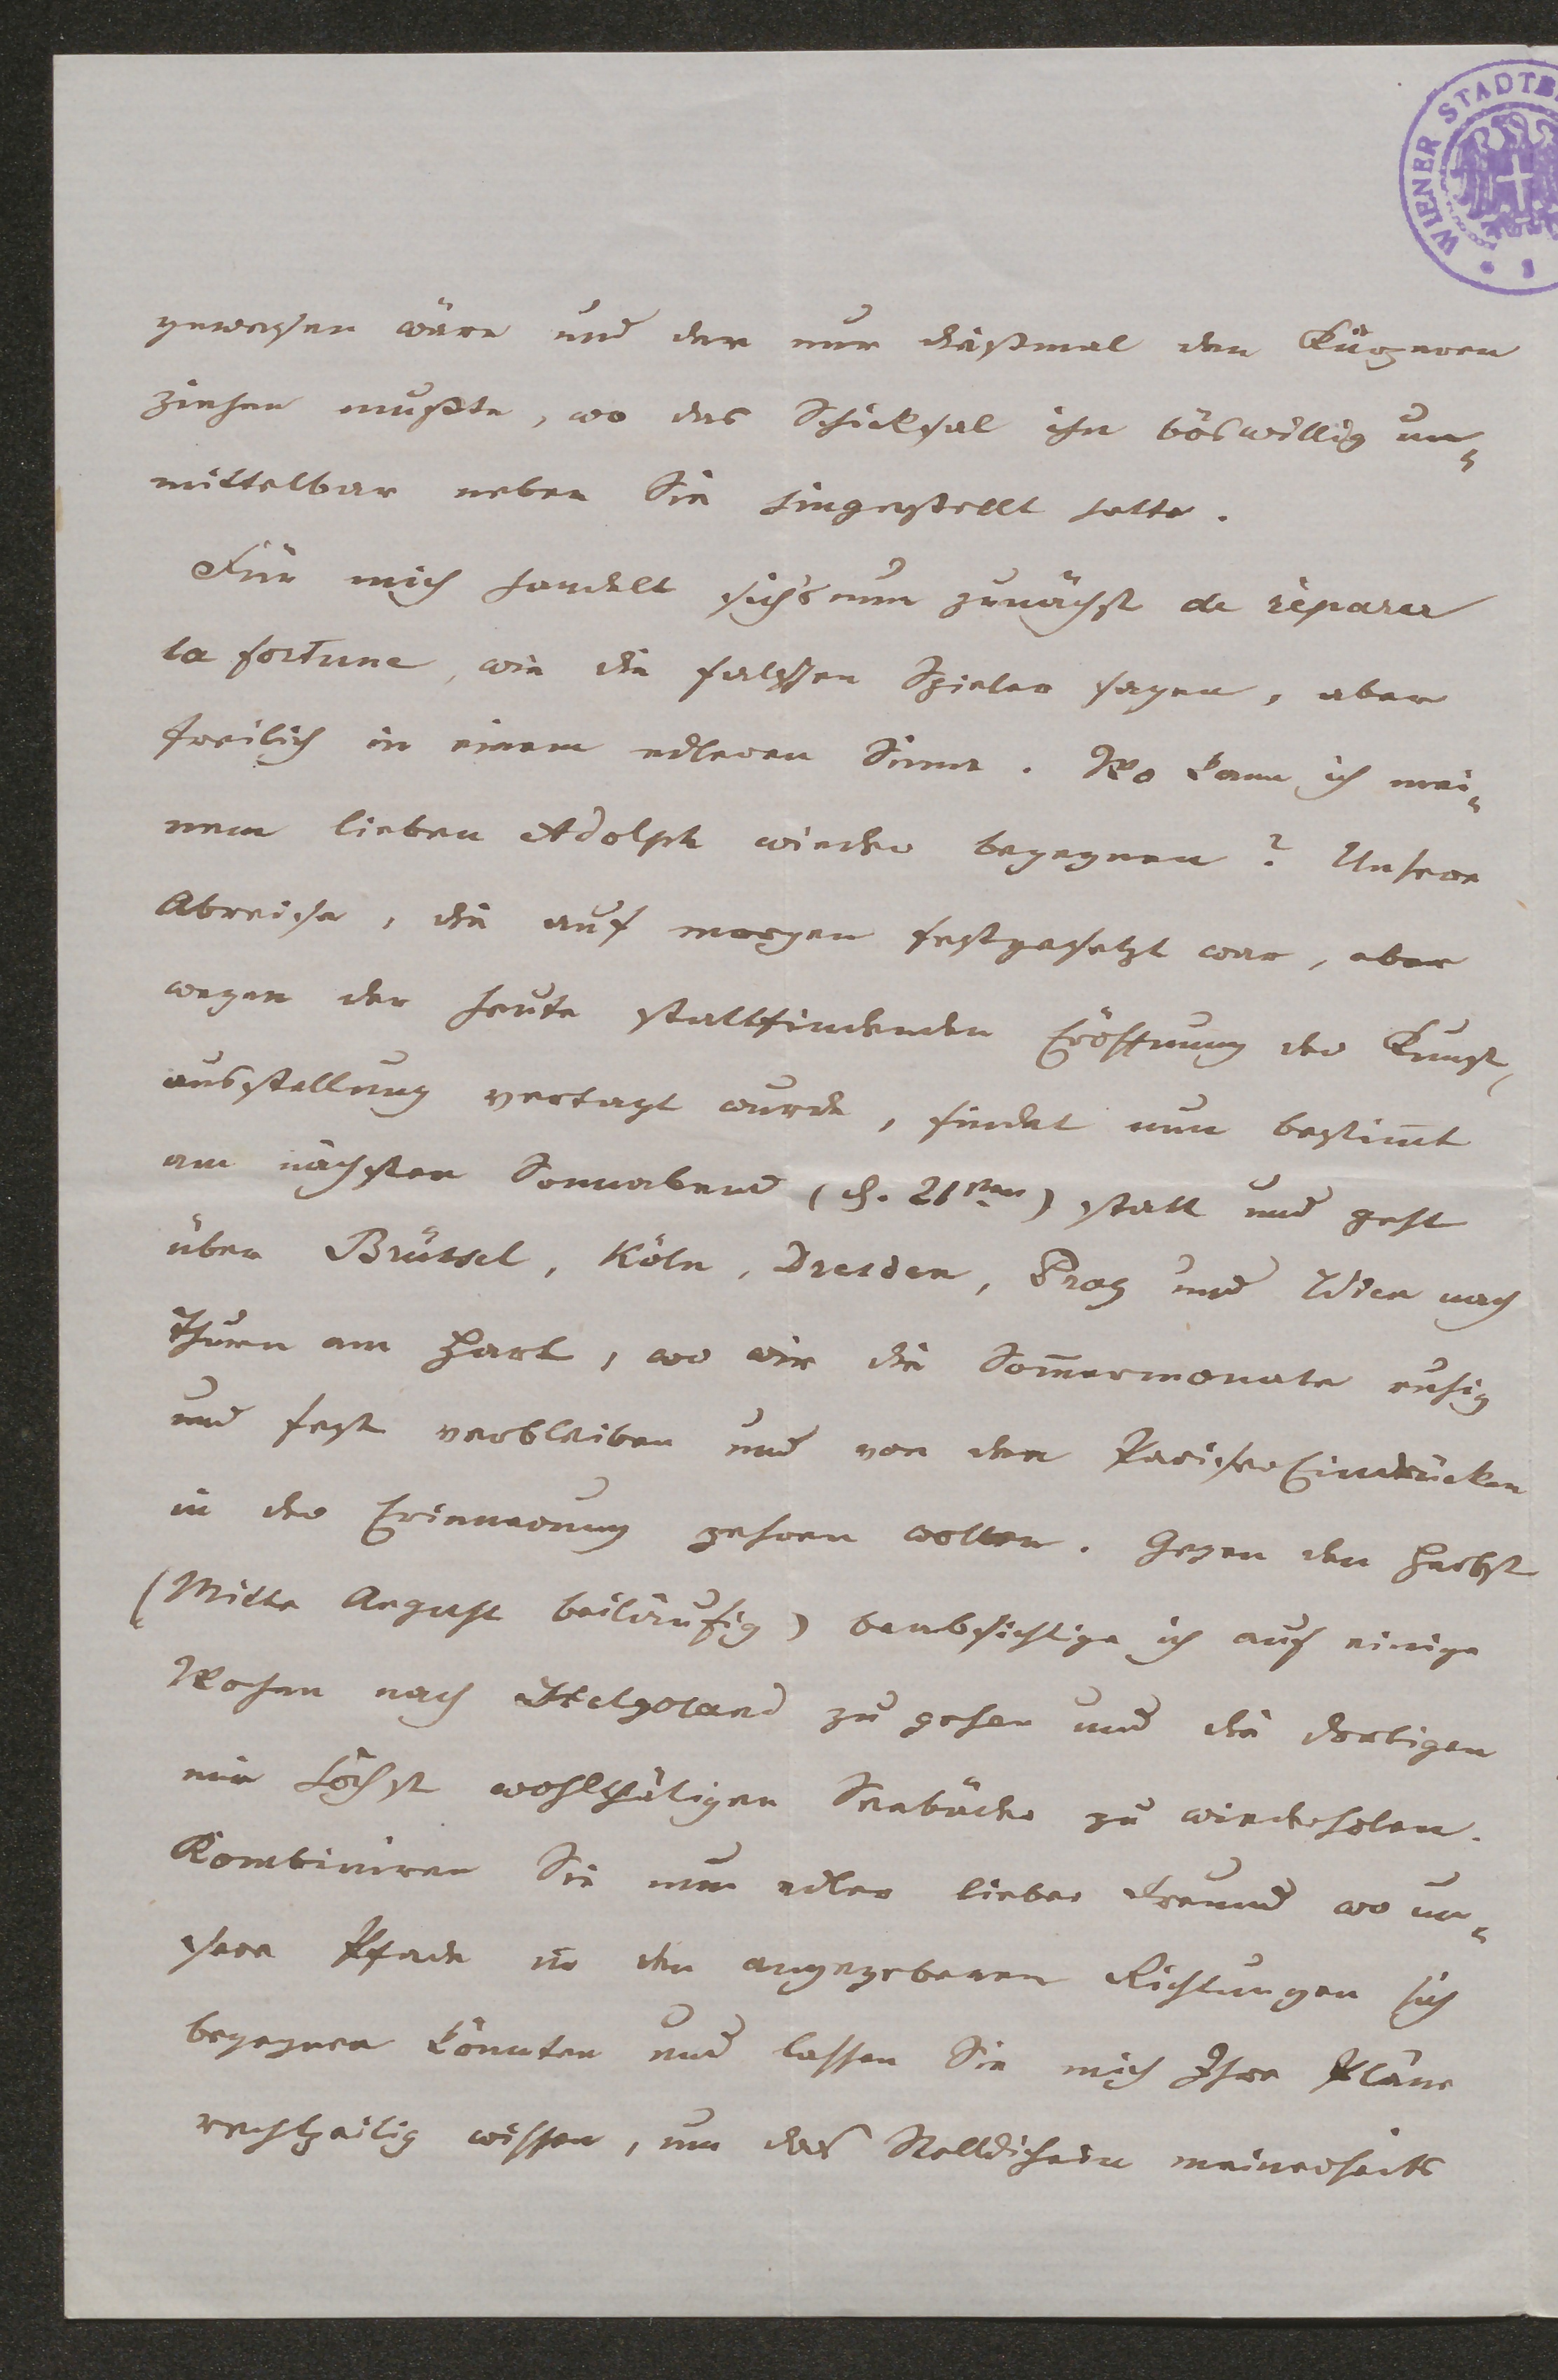 WIENER STADTB
gewesen wäre und der nur dießmal den Kürzeren
ziehen mußte, wo das Schicksal ihn böswillig un=
mittelbar neben Sie hingestellt hatte.
Für mich handelt sich's nun zunächst de réparer
la fortune, wie die falschen Spieler sagen, aber
freilich in einem edleren Sinne. Wo kann ich mei=
nem lieben Adolph wieder begegnen? Unsere
Abreise, die auf morgen festgesetzt war, aber
wegen der heute stattfindenden Eröffnung der Kunst-
ausstellung vertagt wurde, findet nun bestim̄t
am nächsten Sonnabend (d. 21sten) statt und geht
über Brüssel, Köln, Dresden, Prag und Wien nach
Thurn am Hart, wo wir die Som̄ermonate ruhig
und fest verbleiben und von den Pariser Eindrücken
in der Erinnerung zehren wollen. Gegen den Herbst
(Mitte August beiläufig) beabsichtige ich auf einige
Wochen nach Helgoland zu gehen und die dortigen
mir höchst wohlthätigen Seebäder zu wiederholen.
Kombiniren Sie nun edler lieber Freund wo un=
sere Pfade in den angegebenen Richtungen sich
begegnen könnten und lassen Sie mich Ihre Pläne
rechtzeitig wissen, um das Stelldichein meinerseits